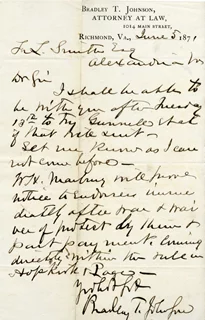 BRADLEY T. JOHNSON,
ATTORNEY AT LAW,
1014 MAIN STREET,
RICHMOND, VA., June 5 1871
F. L. Smith Esq
Alexandria Va
Dr Sir
I shall be able to
be with you after Tuesday
13th to try Gunnell's
of that note suit.
Let me know as I can
not come before
W. H. Marbury will prove
notice to Endorser imme
diately after war & wai
ver of protest by them &
part payment. Coming
directly within the rule in
Hopkirk & Page
Bradley T. Johnson